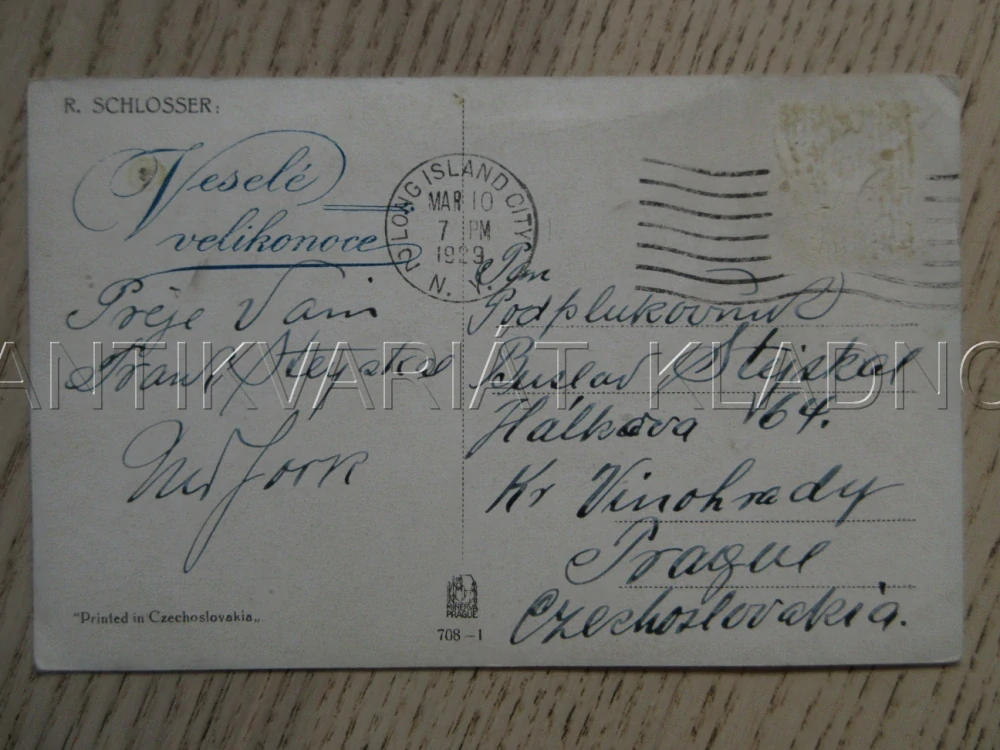 R. SCHLOSSER:
Veselé
velikonoce
Přeje Vam
Frank Stejskal
New York
LONG ISLAND CITY
MAR 10
7 PM
1929
N. Y.
Pan
Podplukovnik
Stejskal
Hálkova 64.
Kr Vinohrady
Prague
Czechoslovakia.
"Printed in Czechoslovakia„
MINERVA
PRAGUE
708-1
ANTIKVARIÁT KLADNO